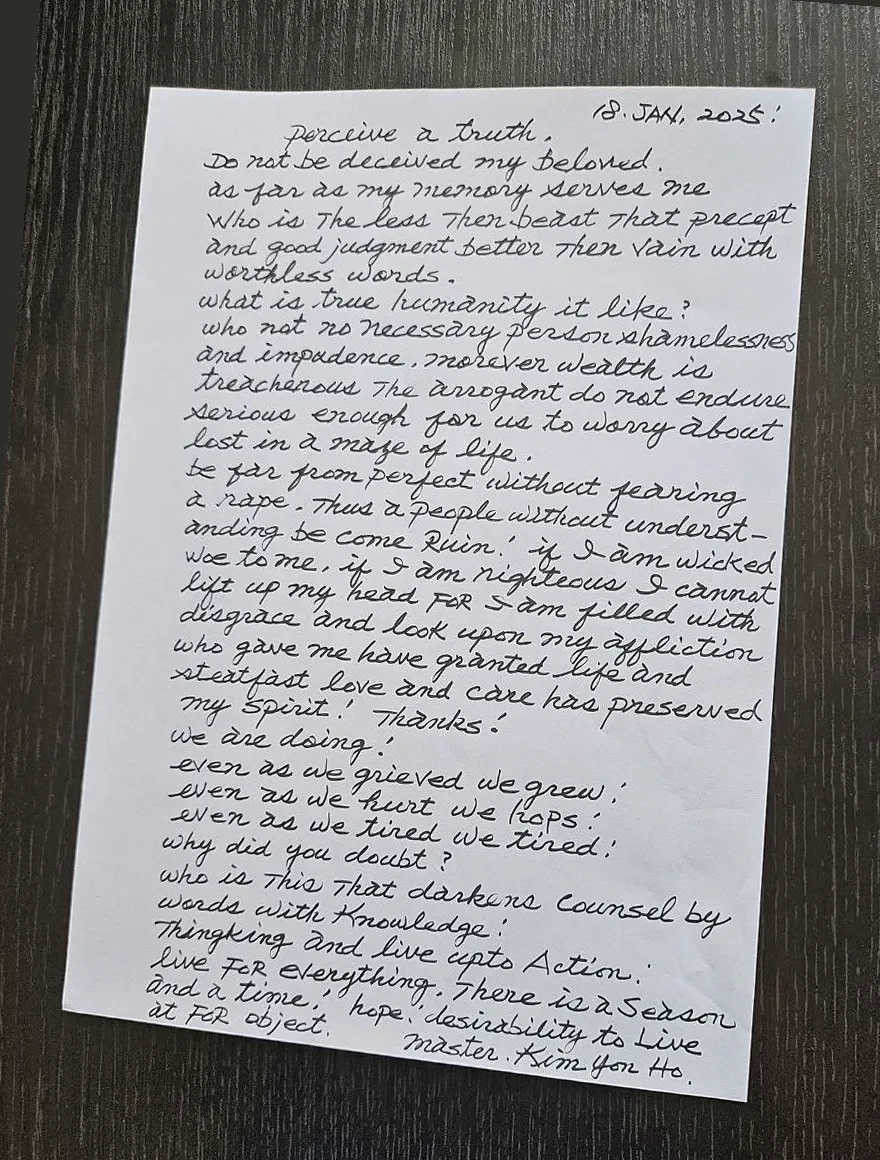 18. JAN, 2025!
perceive a truth.
Do not be deceived my beloved.
as far as my memory serves me
Who is The less Then beast That precept
and good judgment better Then vain with
worthless words.
what is true humanity it like?
who not no necessary person shamelessness
and impudence. morever wealth is
treacherous The arrogant do not endure
serious enough for us to worry about
lost in a maze of life.
be far from perfect without fearing
a rape. Thus a people without underst-
anding be come Ruin! if I am wicked
woe to me, if I am righteous I cannot
lift up my head FOR I am filled with
disgrace and look upon my affliction
who gave me have granted life and
steatfast love and care has preserved
my spirit! Thanks!
we are doing!
even as we grieved we grew!
even as we hurt we hops!
even as we tired we tired!
why did you doubt?
who is This That darkens counsel by
words with Knowledge!
Thingking and live upto Action!
live FOR everything. There is a Season
and a time! hope! desirability to Live
at FOR object.
master. Kim Yon Ho.